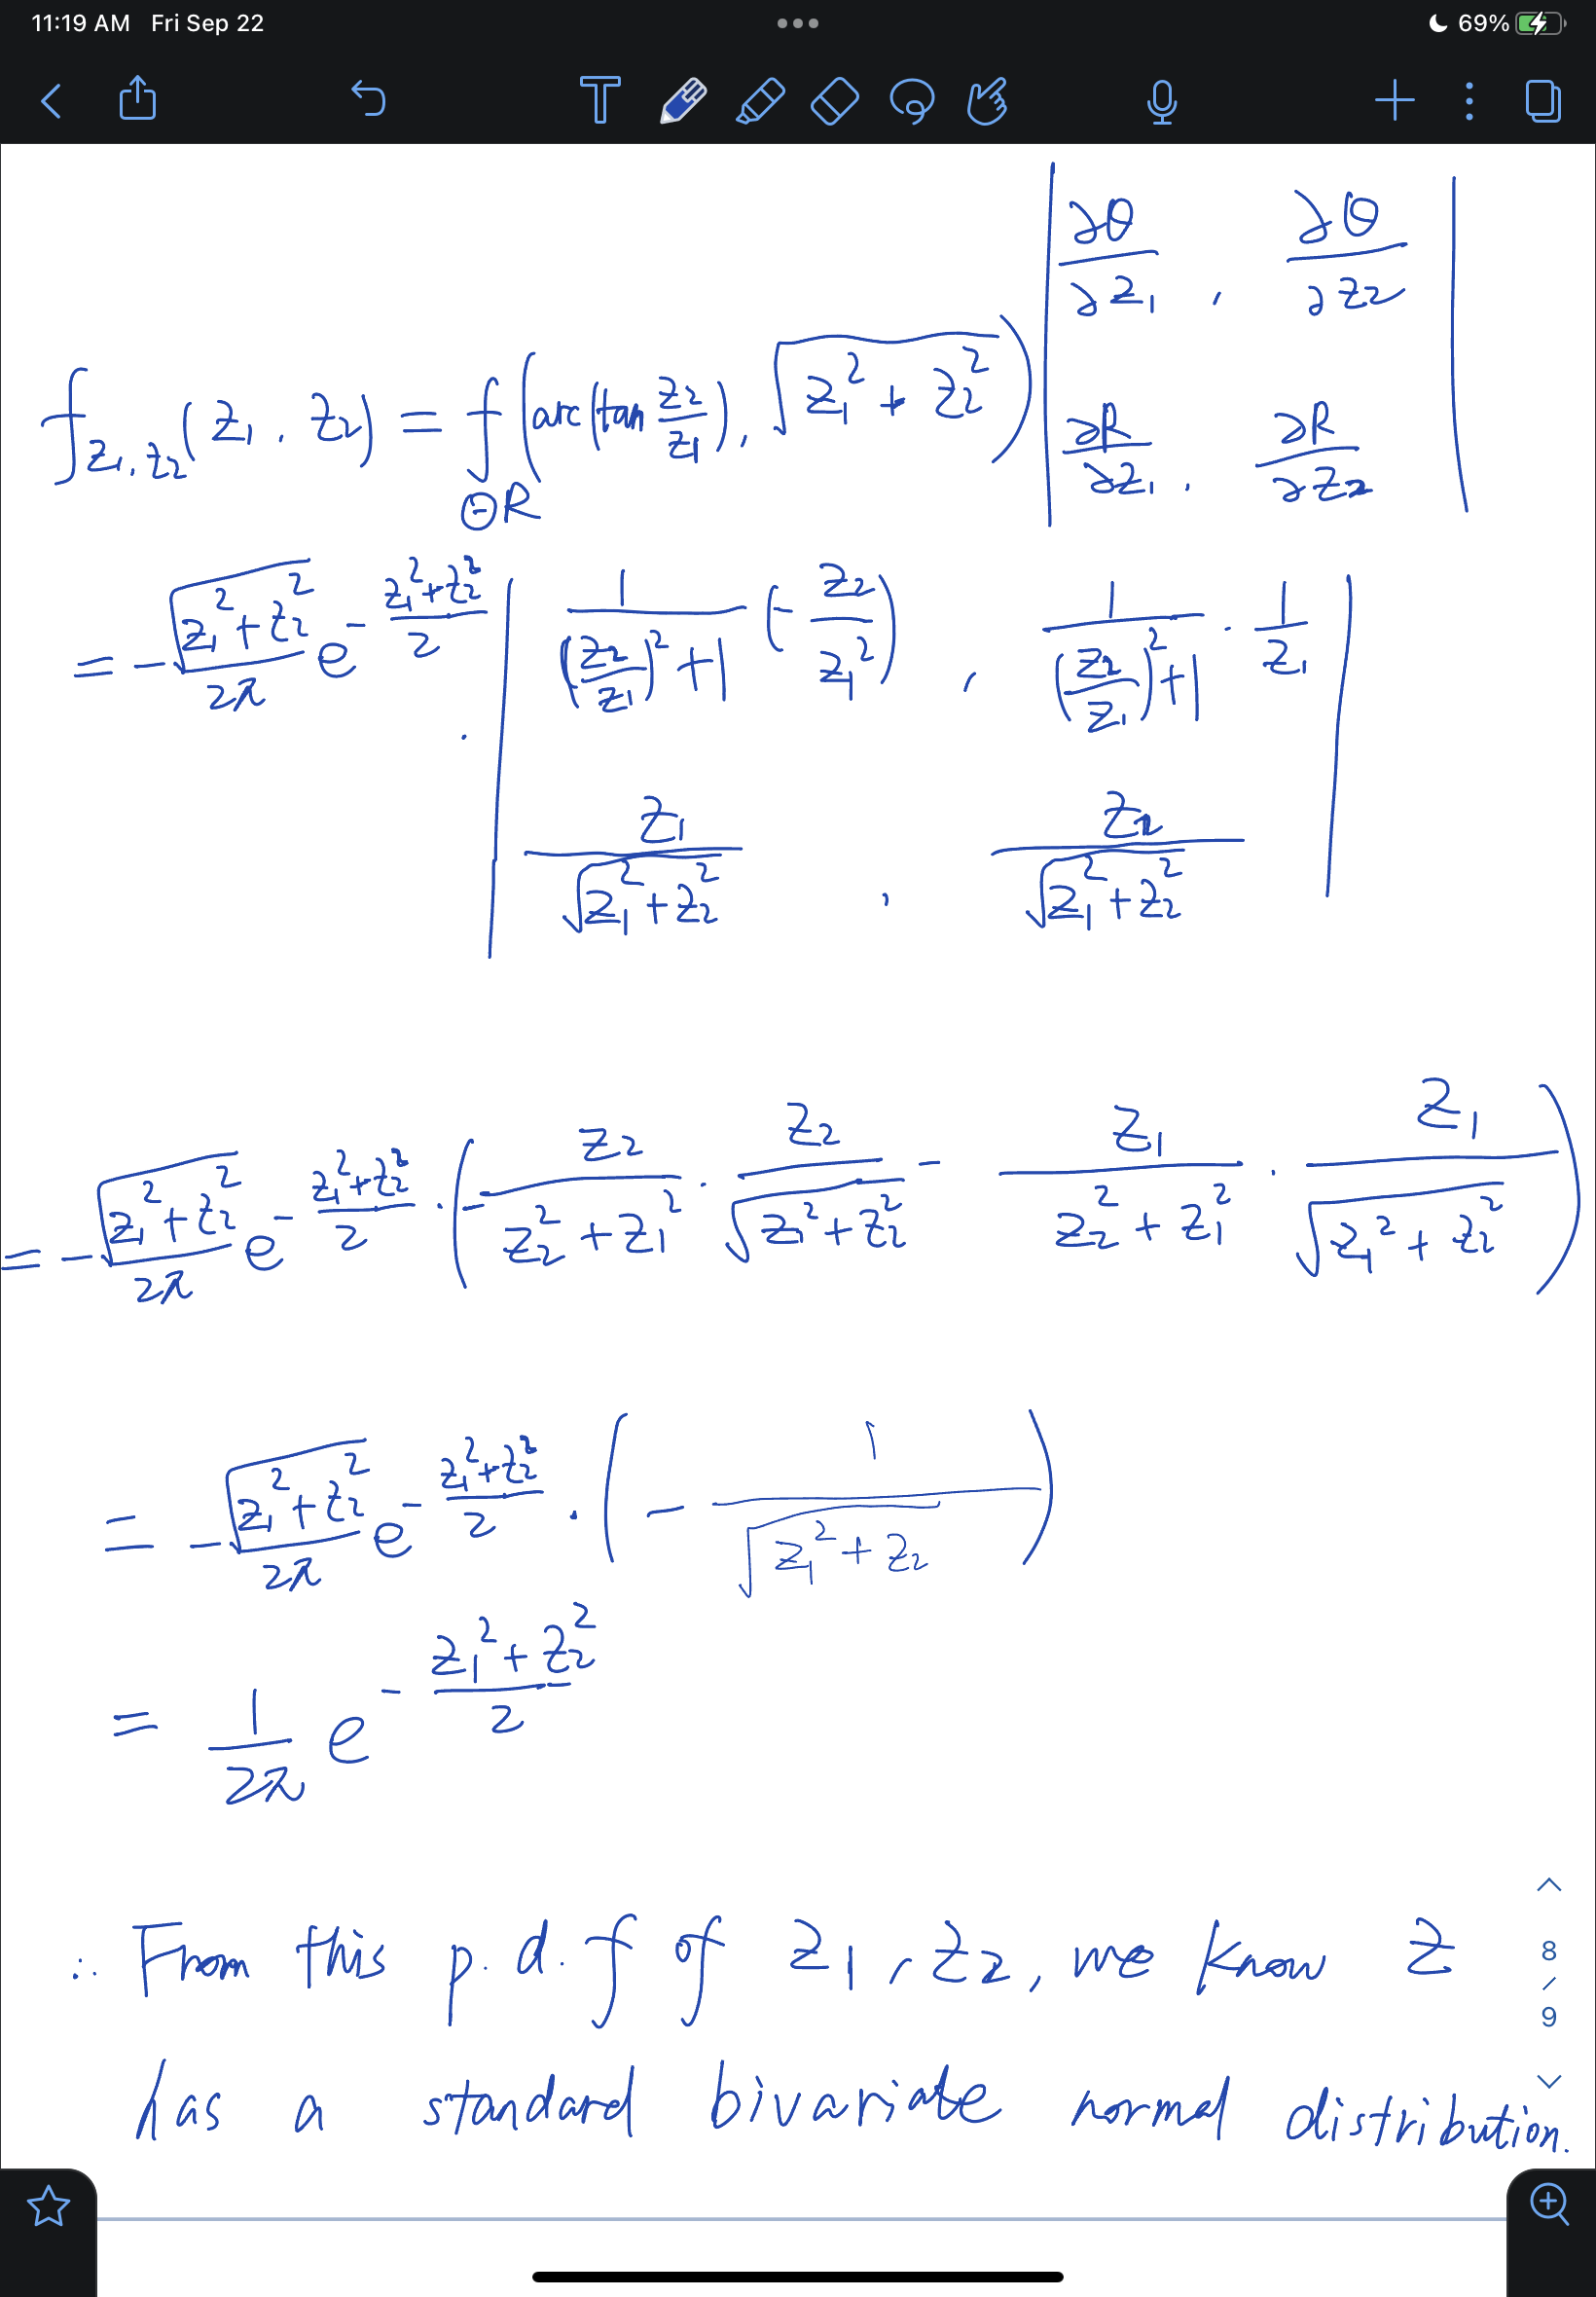 11:19 AM Fri Sep 22
69%
T
f_{Z1,Z2}(Z1, Z2) = f_{ΘR}(arc(tan Z2/Z1), √(Z1² + Z2²)) | ∂θ/∂Z1, ∂θ/∂Z2 ; ∂R/∂Z1, ∂R/∂Z2 |
= -√(Z1²+Z2²)/2π e^{-(Z1²+Z2²)/2} · | 1/((Z2/Z1)²+1) (-Z2/Z1²), 1/((Z2/Z1)²+1) · 1/Z1 ; Z1/√(Z1²+Z2²), Z2/√(Z1²+Z2²) |
= -√(Z1²+Z2²)/2π e^{-(Z1²+Z2²)/2} · (-Z2/(Z2²+Z1²) · Z2/√(Z1²+Z2²) - Z1/(Z2²+Z1²) · Z1/√(Z1²+Z2²))
= -√(Z1²+Z2²)/2π e^{-(Z1²+Z2²)/2} · (-1/√(Z1²+Z2))
= 1/2π e^{-(Z1²+Z2²)/2}
∴ From this p.d.f of Z1, Z2, we know Z
has a standard bivariate normal distribution.
8
/
9